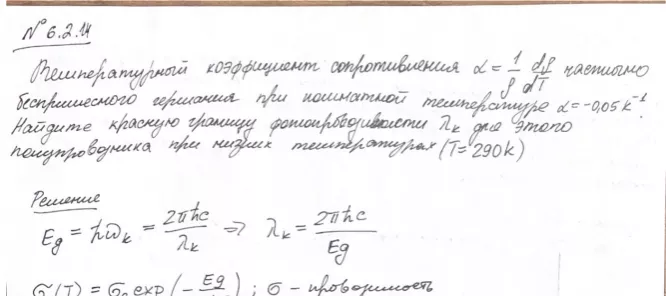 № 6.2.14
Температурный коэффициент сопротивления α = 1/ρ dρ/dT частично
беспримесного германия при комнатной температуре α = -0,05 K⁻¹.
Найдите красную границу фотопроводимости λк для этого
полупроводника при низких температурах (T = 290 K)
Решение
Eg = ħωк = 2πħc/λк => λк = 2πħc/Eg
σ(T) = σ₀ exp(-Eg/ ) ; σ - проводимость